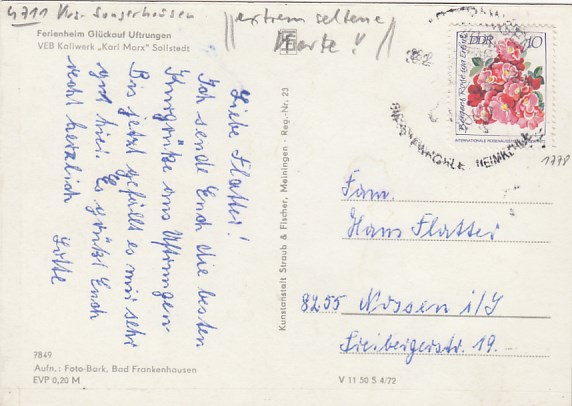 4711 Krs. Sangerhausen
extrem seltene
Karte!
Ferienheim Glückauf Uftrungen
VEB Kaliwerk „Karl Marx" Sollstedt
Liebe Flattei!
Ich sende Euch die besten
Kurgrüße aus Uftrungen
Bis jetzt gefällt es mir sehr
gut hier. Es grüßt Euch
recht herzlich Lotte
7849
Aufn.: Foto-Bark, Bad Frankenhausen
EVP 0,20 M
Kunstanstalt Straub & Fischer, Meiningen · Reg.-Nr. 23
V 11 50 S 4/72
DDR 10
HEIMKEHLE
1778
Fam.
Hans Flattei
8255 Nossen i/S
Freibergerstr. 19.